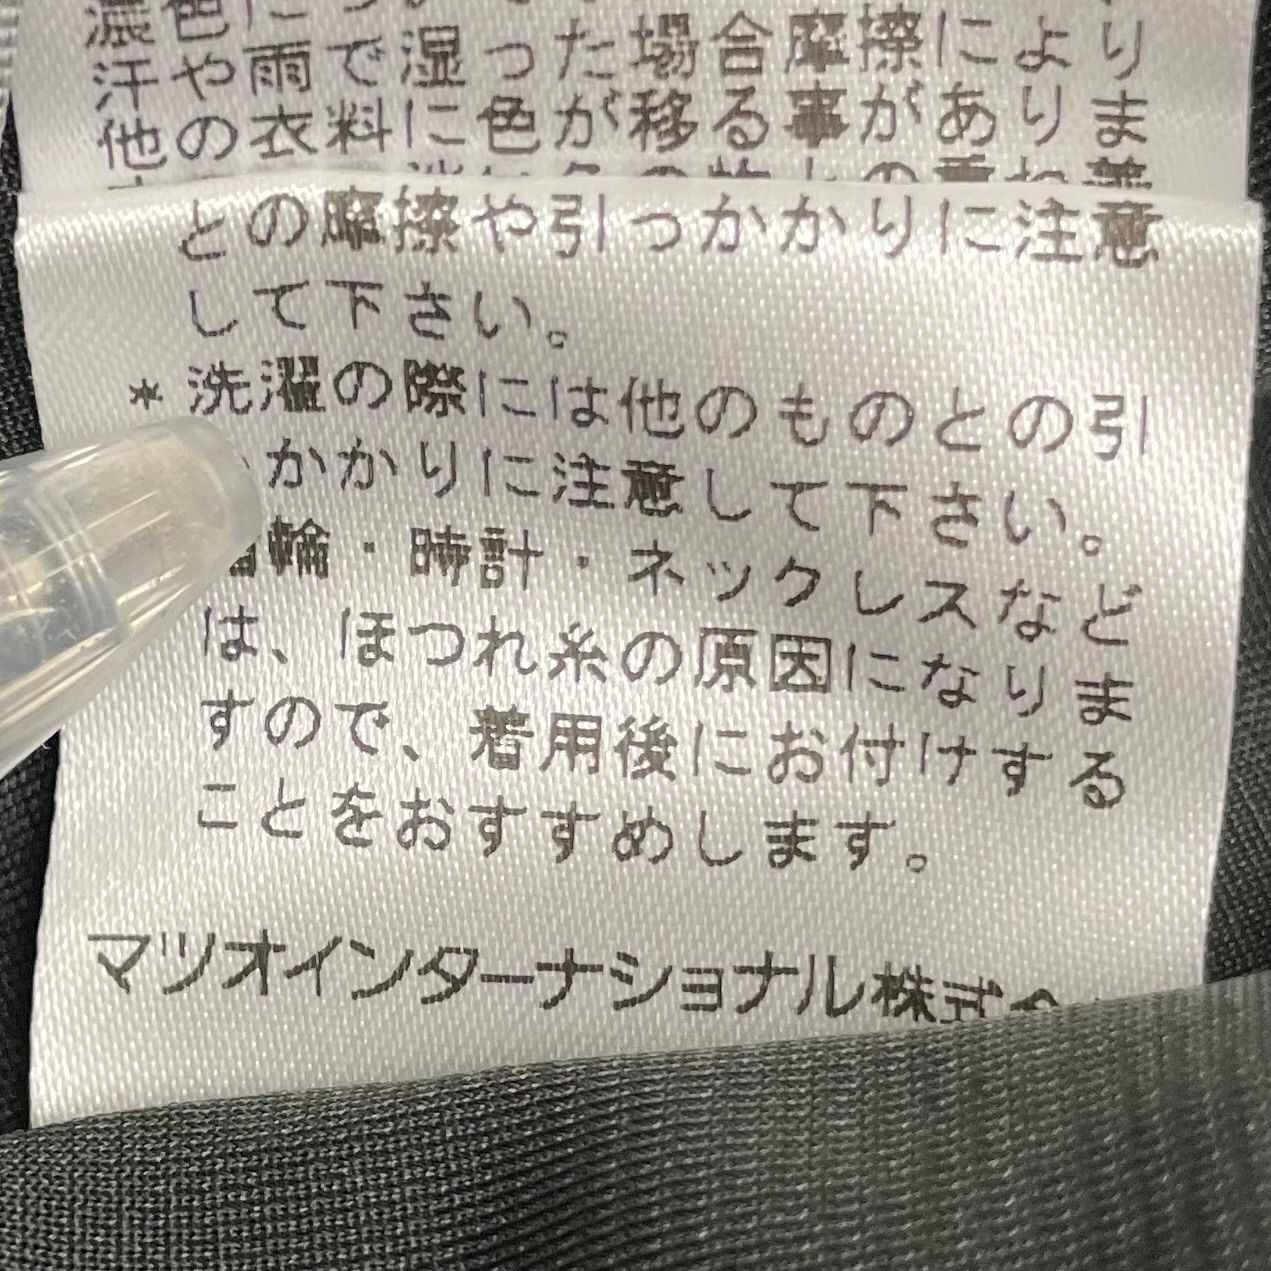 汗や雨で湿った場合摩擦により
他の衣料に色が移る事がありま
との摩擦や引っかかりに注意
して下さい。
*洗濯の際には他のものとの引
かかりに注意して下さい。
輪・時計・ネックレスなど
は、ほつれ糸の原因になりま
すので、着用後にお付けする
ことをおすすめします。
マツオインターナショナル株式